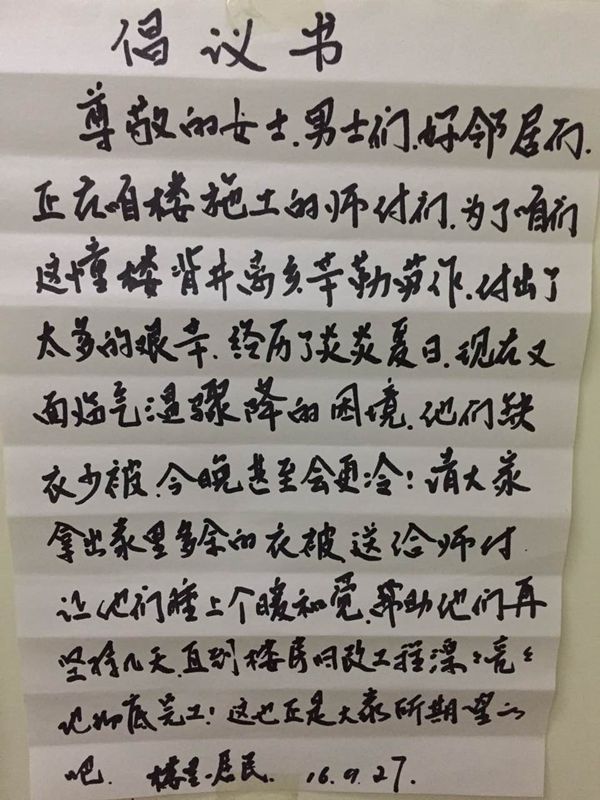 倡议书
尊敬的女士.男士们.好邻居们.
正在咱楼施工的师付们.为了咱们
这幢楼背井离乡辛勤劳作.付出了
太多的艰辛.经历了炎炎夏日.现在又
面临气温骤降的困境.他们缺
衣少被.今晚甚至会更冷!请大家
拿出家里多余的衣被送给师付.
让他们睡上个暖和觉.帮助他们再
坚持几天.直到楼房旧改工程漂〻亮〻
地彻底完工!这也正是大家所期望的
吧. 楼里居民. 16.9.27.